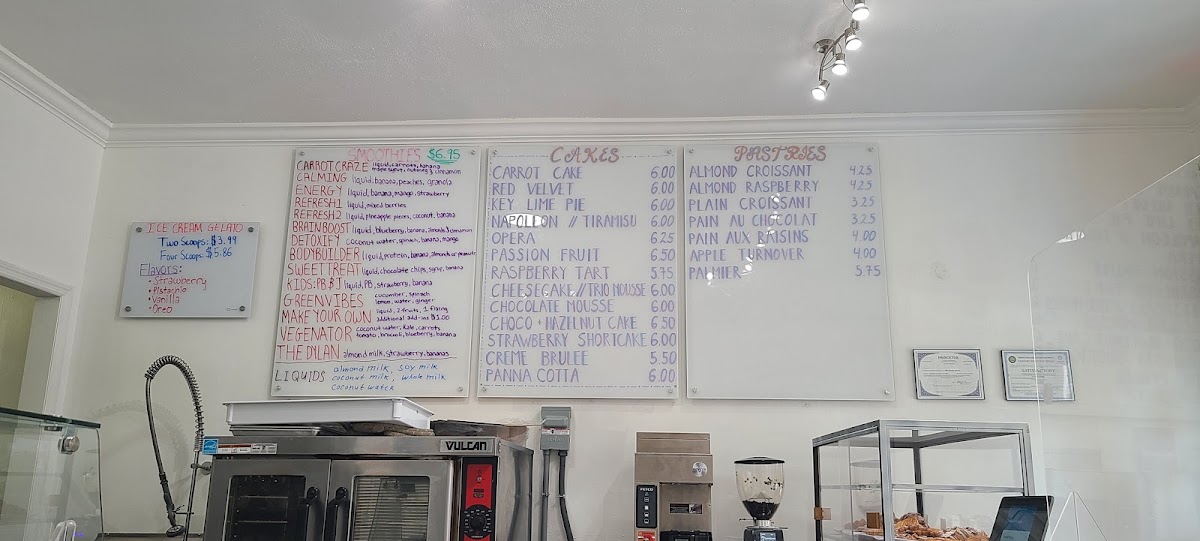 ICE CREAM GELATO
Two Scoops: $3.99
Four Scoops: $5.86
Flavors:
• Strawberry
• Pistachio
• Vanilla
• Oreo
SMOOTHIES $6.95
CARROT CRAZE liquid, carrots, banana
maple syrup, nutmeg & cinnamon
CALMING liquid, banana, peaches, granola
ENERGY liquid, banana, mango, strawberry
REFRESH1 liquid, mixed berries
REFRESH2 liquid, pineapple pieces, coconut, banana
BRAINBOOST liquid, blueberry, banana, almonds & cinnamon
DETOXIFY coconut water, spinach, banana, mango
BODYBUILDER liquid, protein, banana, almonds or peanuts
SWEET TREAT liquid, chocolate chips, syrup, banana
KIDS: PB & J liquid, PB, strawberry, banana
GREENVIBES cucumber, spinach
lemon, water, ginger
MAKE YOUR OWN liquid, 2 fruits, 1
additional add-ins $1.00
VEGENATOR coconut water, kale, carrots
tomato, broccoli, blueberry, banana
THE DYLAN almond milk, strawberry, bananas
LIQUIDS almond milk, soy milk
coconut milk, whole milk
coconut water
CAKES
CARROT CAKE 6.00
RED VELVET 6.00
KEY LIME PIE 6.00
NAPOLEON // TIRAMISU 6.00
OPERA 6.25
PASSION FRUIT 6.50
RASPBERRY TART 5.75
CHEESECAKE // TRIO MOUSSE 6.00
CHOCOLATE MOUSSE 6.00
CHOCO + HAZELNUT CAKE 6.50
STRAWBERRY SHORTCAKE 6.00
CREME BRULEE 5.50
PANNA COTTA 6.00
PASTRIES
ALMOND CROISSANT 4.25
ALMOND RASPBERRY 4.25
PLAIN CROISSANT 3.25
PAIN AU CHOCOLAT 3.25
PAIN AUX RAISINS 4.00
APPLE TURNOVER 4.00
PALMIER 5.75
VULCAN